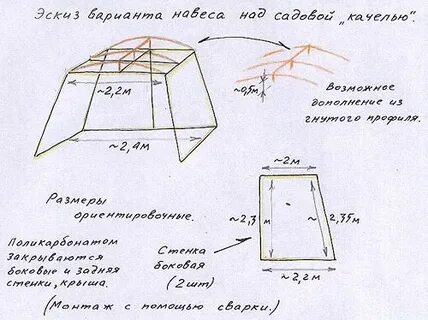 Эскиз варианта навеса над садовой „качелью".
~2,2м
~0,5м
Возможное
дополнение из
гнутого профиля.
~2,4м
Размеры
ориентировочные.
~2м
~2,3 м
~2,35м
~2,2м
Поликарбонатом
закрываются
боковые и задняя
стенки, крыша.
Стенка
боковая
(2шт)
(Монтаж с помощью сварки.)